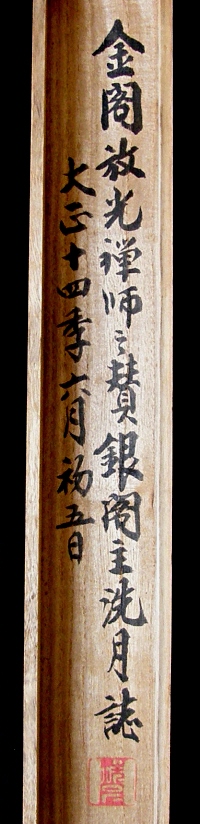 金閣放光禅師之賛銀閣主洗月誌
大正十四季六月初五日